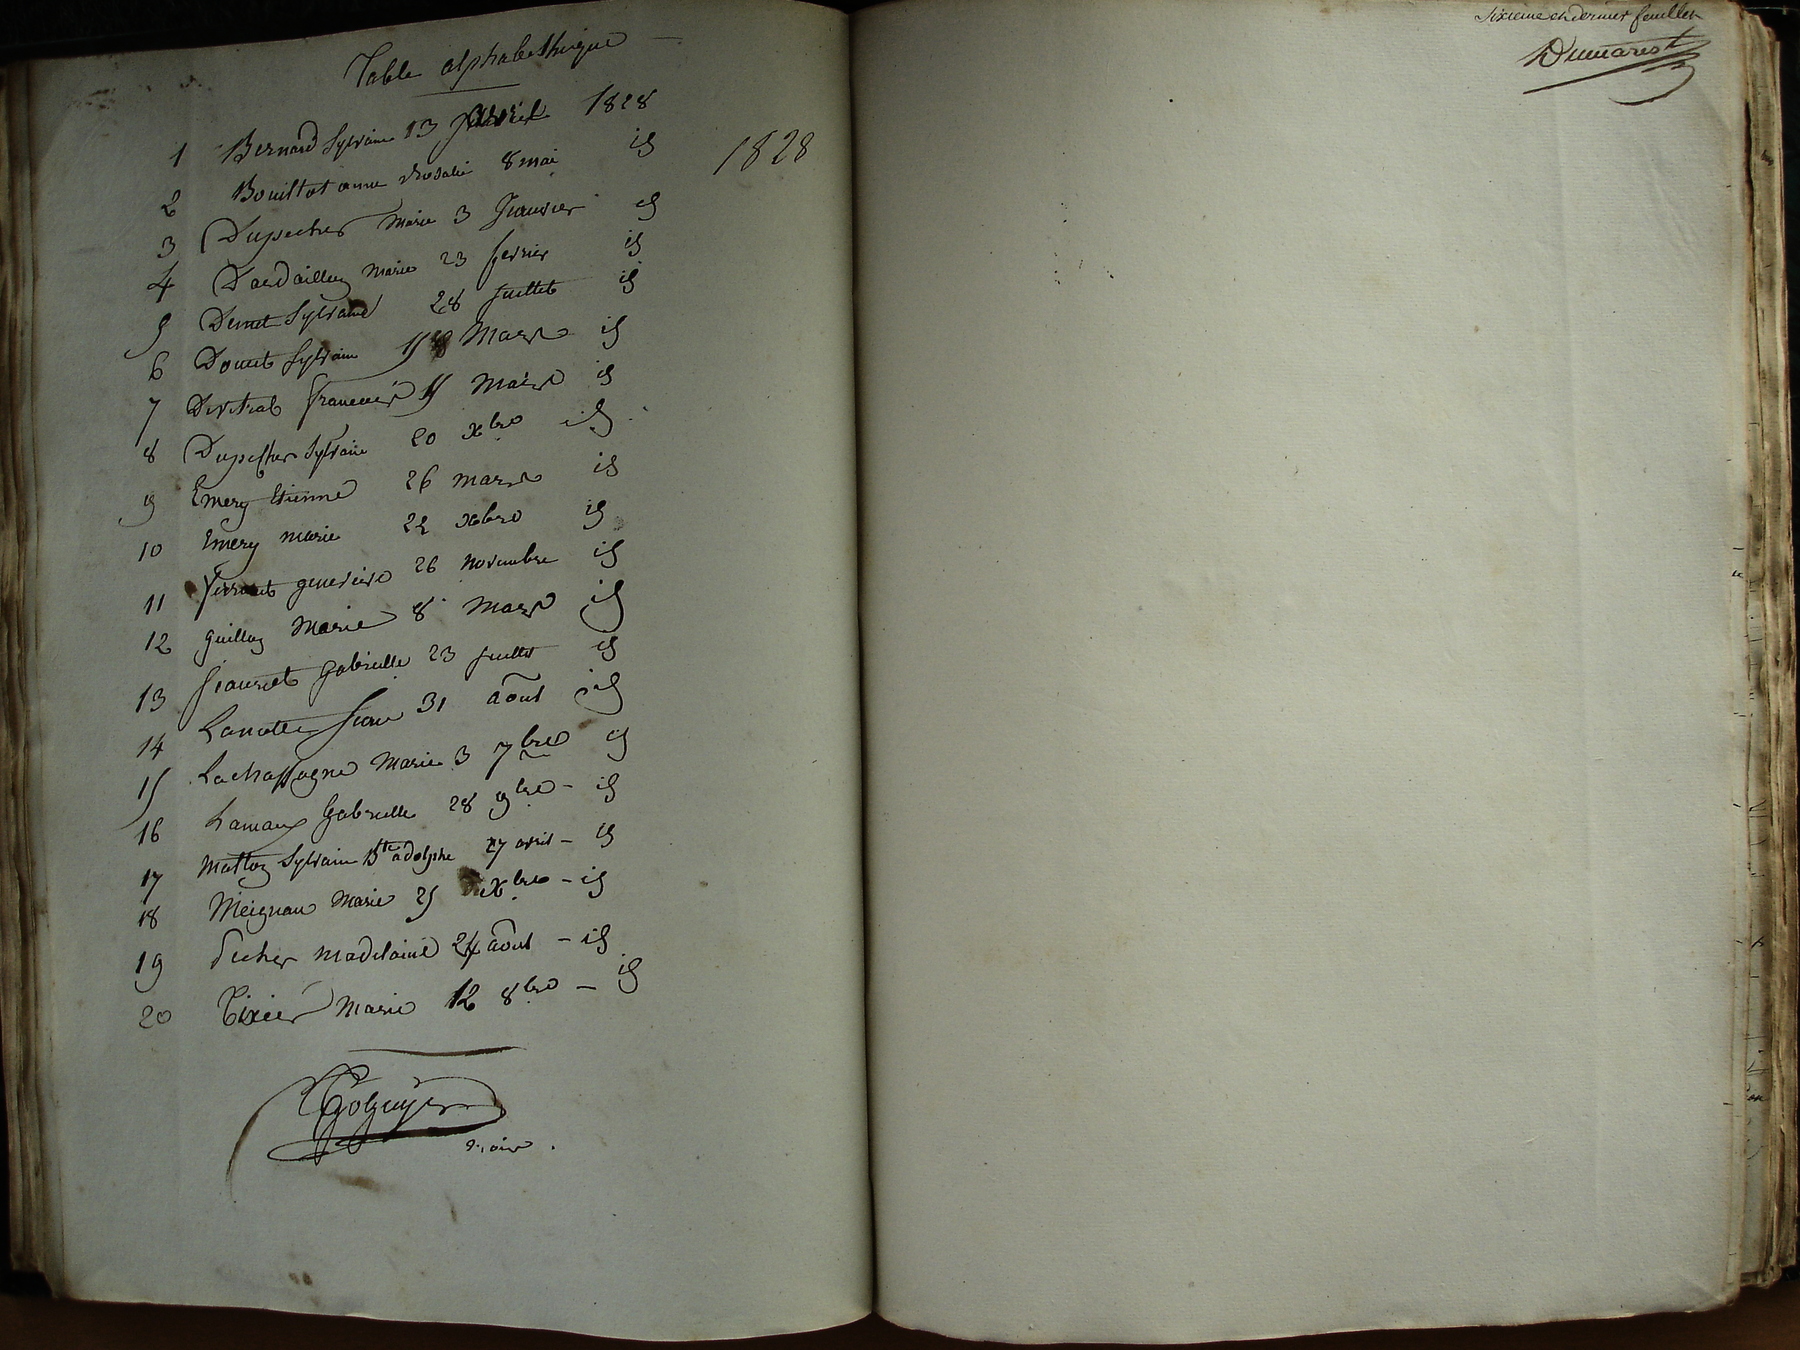 Table alphabethique
1 Bernard Sylvain 13 avril 1828
2 Bouillot anne Rosalie 8 mai id
1828
3 Dupecher Marie 3 Janvier id
4 Dardaillon Marie 23 fevrier id
5 Demet Sylvain 28 Juillet id
6 Doucet Sylvain Mars id
7 francois 11 Mars id
8 Dupecher Sylvain 20 xbre id
9 Emery Etienne 26 mars id
10 Emery marie 22 xbre id
11 genevieve 26 novembre id
12 guillon Marie 8 Mars id
13 Jeauriet gabrielle 23 Juillet id
14 Lamotte Jean 31 aout id
15 Lachassagne Marie 3 7bre id
16 Lamaux Gabrielle 28 9bre - id
17 Sylvain Bte adolphe 27 avril - id
18 Meignan Marie 25 xbre - id
19 Pecher Madelaine 24 aout - id
20 Tixier Marie 12 8bre - id
maire
Sixieme et dernier feuillet
Dumarest